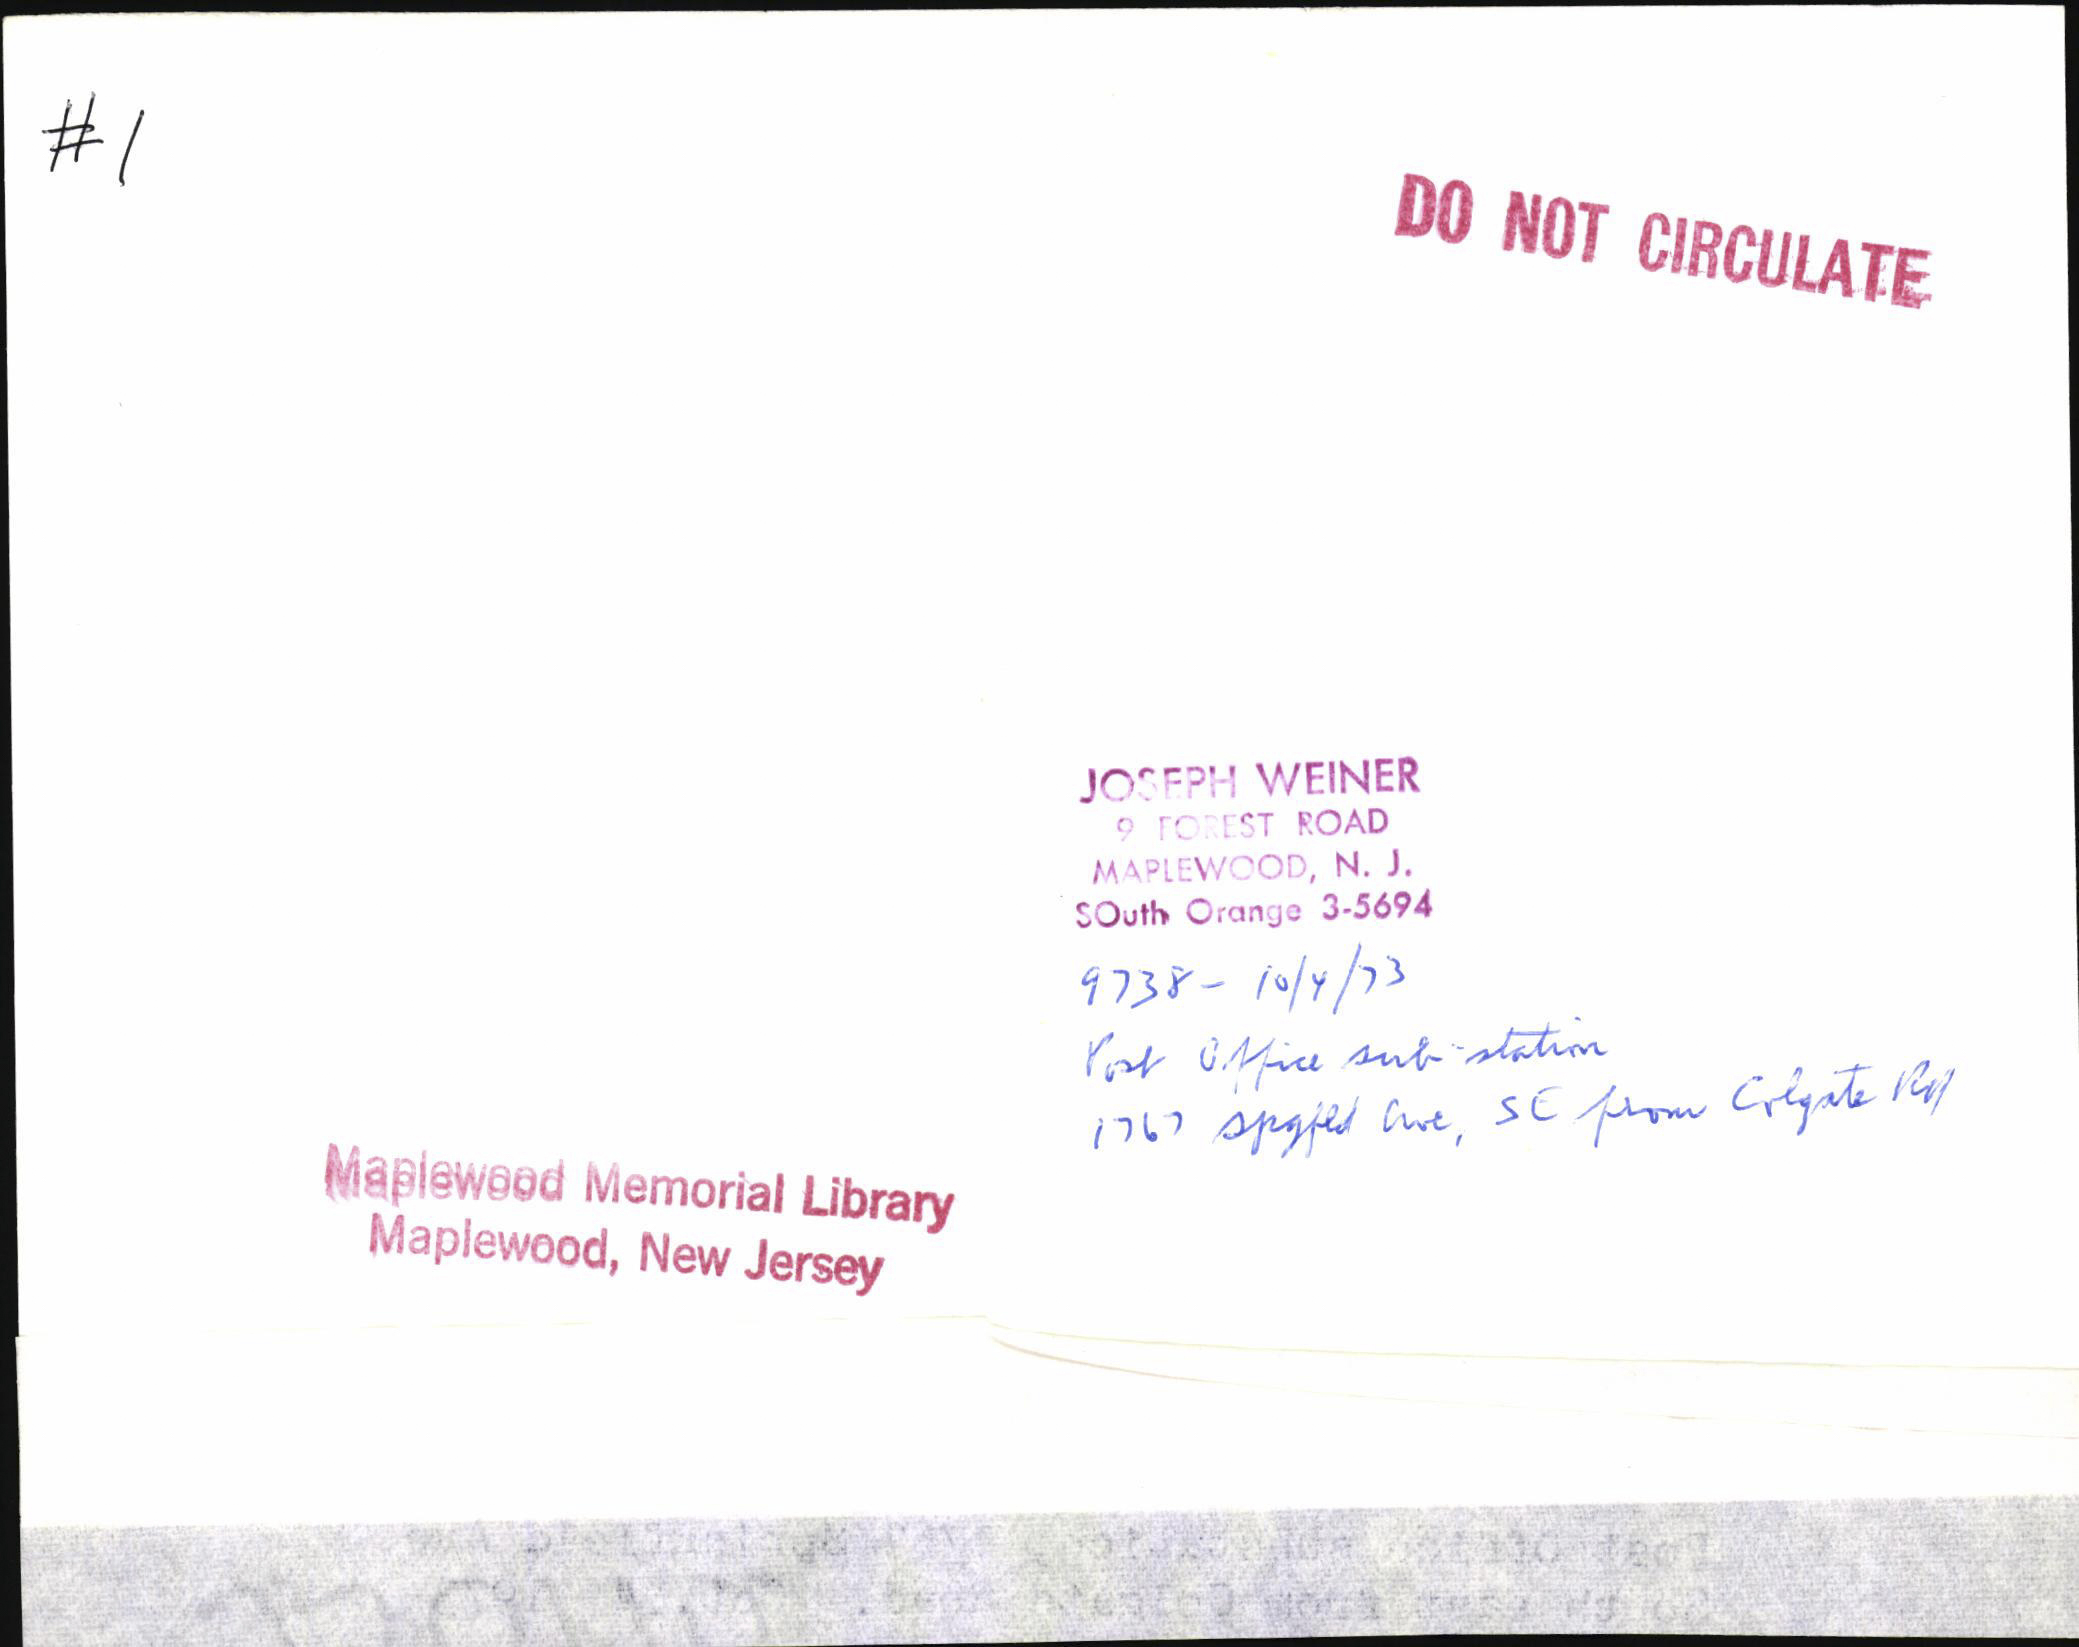 #1
DO NOT CIRCULATE
JOSEPH WEINER
9 FOREST ROAD
MAPLEWOOD, N. J.
SOuth Orange 3-5694
9738 - 10/4/73
Post Office sub-station
1767 Spgfld Ave, SE from Colgate Rd
Maplewood Memorial Library
Maplewood, New Jersey